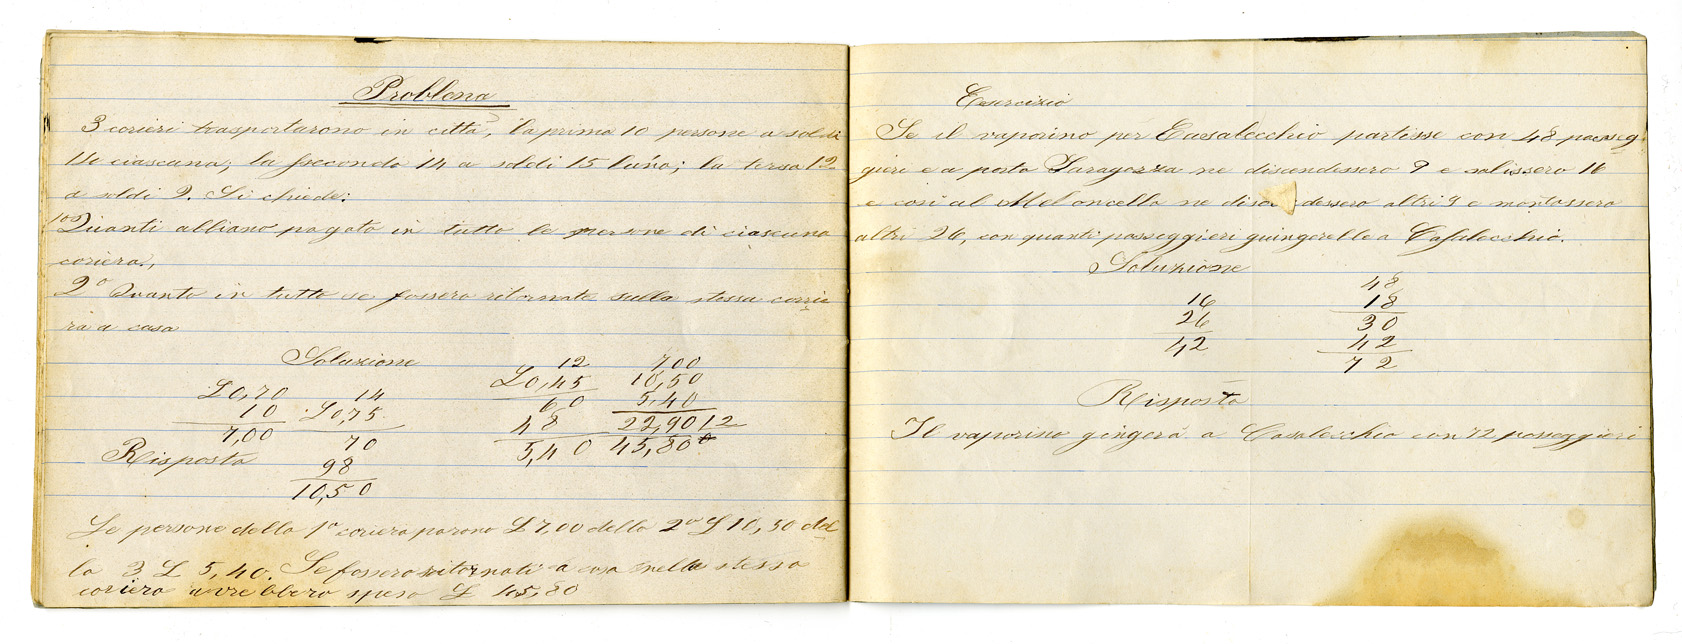 Problema
3 corieri trasportarono in città, la prima 10 persone a soldi
14 ciascuna; la seconda 14 a soldi 15 l'una; la tersa 12
a soldi 9. Si chiede:
1º Quanti abbiano pagato in tutto le persone di ciascuna
coriera,
2º Quanto in tutto se fossero ritornate sulla stessa corrie
ra a casa
Soluzione
£0,70
10
7,00
14
£0,75
70
98
10,50
12
£0,45
60
48
5,40
7,00
10,50
5,40
22,90 | 2
45,80
Risposta
Le persone della 1ª coriera parono £ 7,00 della 2ª £ 10,50 del
la 3 £ 5,40. Se fossero ritornati a casa nella stessa
coriera avrebbero speso £ 45,80
Esercizio
Se il vaporino per Casalecchio partisse con 48 passeg
gieri e a porta Saragozza ne discendessero 9 e salissero 16
e così al Meloncello ne discendessero altri 9 e montassero
altri 26, con quanti passeggieri guingerebbe a Casalecchio.
Soluzione
16
26
42
48
18
30
42
72
Risposta
Il vaporino gingerà a Casalecchio con 72 passeggieri